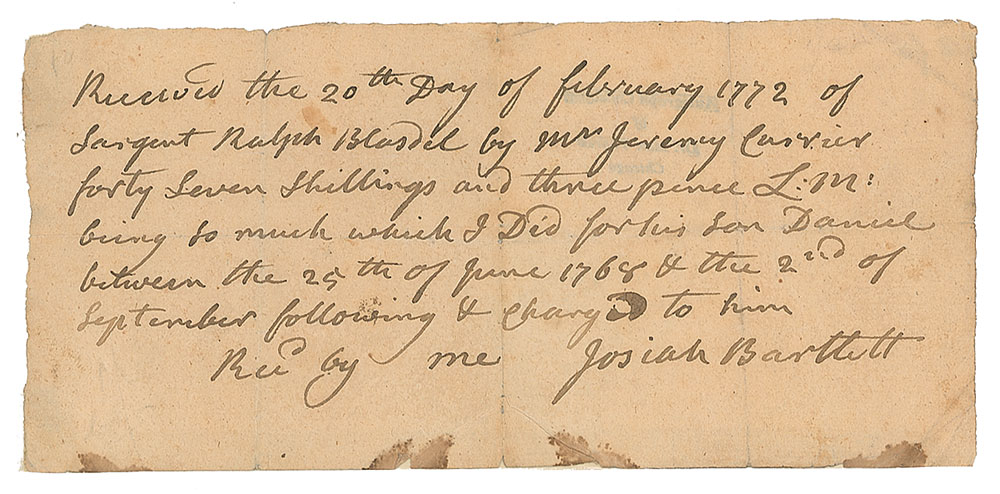 Received the 20th Day of february 1772 of
Sargent Ralph Blasdel by Mr Jeremy Currier
forty Seven Shillings and three pence L:M:
being so much which I Did for his son Daniel
between the 25th of June 1768 & the 2nd of
September following & Charg'd to him
Recd by me Josiah Bartlett